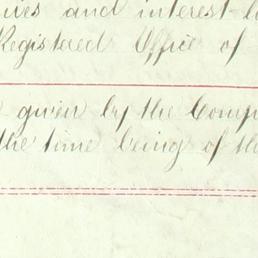 and interest
Registered Office of
given by the
the time being of